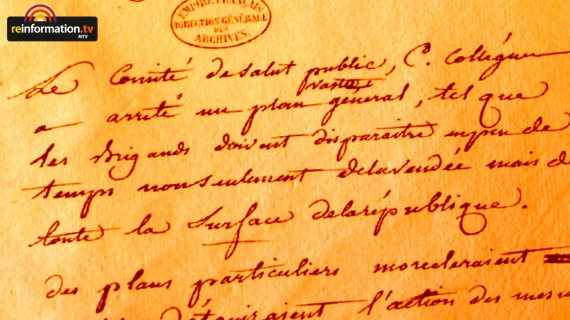 reinformation.tv
RTV
EMPIRE FRANÇAIS
DIRECTION GÉNÉRALE
DES
ARCHIVES
Le Comité de Salut public, C. Collégue
vaste
a arrété un plan général, tel que
les Brigands doivent disparaitre en peu de
temps non seulement delavendée mais de
toute la Surface delarépublique.
des plans particuliers morceleraient
l'action des mesu